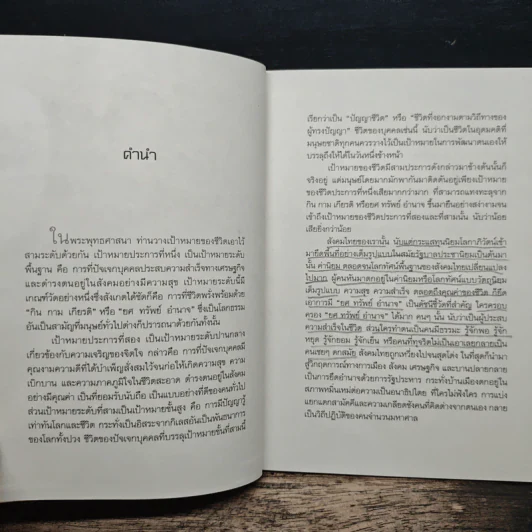 คำนำ
ในพระพุทธศาสนา ท่านวางเป้าหมายของชีวิตเอาไว้
สามระดับด้วยกัน เป้าหมายประการที่หนึ่ง เป็นเป้าหมายระดับ
พื้นฐาน คือ การที่ปัจเจกบุคคลประสบความสำเร็จทางเศรษฐกิจ
และดำรงตนอยู่ในสังคมอย่างมีความสุข เป้าหมายระดับนี้มี
เกณฑ์วัดอย่างหนึ่งซึ่งสังเกตได้ชัดก็คือ การที่ชีวิตพรั่งพร้อมด้วย
"กิน กาม เกียรติ" หรือ "ยศ ทรัพย์ อำนาจ" ซึ่งเป็นโลกธรรม
อันเป็นสามัญที่มนุษย์ทั่วไปต่างก็ปรารถนาด้วยกันทั้งนั้น
เป้าหมายประการที่สอง เป็นเป้าหมายระดับปานกลาง
เกี่ยวข้องกับความเจริญของจิตใจ กล่าวคือ การที่ปัจเจกบุคคลมี
คุณงามความดีที่ได้บำเพ็ญสั่งสมไว้จนก่อให้เกิดความสุข ความ
เบิกบาน และความภาคภูมิใจในชีวิตสะอาด ดำรงตนอยู่ในสังคม
อย่างมีคุณค่า เป็นที่ยอมรับนับถือ เป็นแบบอย่างที่ดีของคนทั่วไป
ส่วนเป้าหมายระดับที่สามเป็นเป้าหมายขั้นสูง คือ การมีปัญญารู้
เท่าทันโลกและชีวิต กระทั่งเป็นอิสระจากกิเลสอันเป็นพันธนาการ
ของโลกทั้งปวง ชีวิตของปัจเจกบุคคลที่บรรลุเป้าหมายขั้นที่สามนี้
เรียกว่าเป็น "ปัญญาชีวิต" หรือ "ชีวิตที่งอกงามตามวิถีทางของ
ผู้ทรงปัญญา" ชีวิตของบุคคลเช่นนี้ นับว่าเป็นชีวิตในอุดมคติที่
มนุษยชาติทุกคนควรวางไว้เป็นเป้าหมายในการพัฒนาตนเองให้
บรรลุถึงให้ได้ในวันหนึ่งข้างหน้า
เป้าหมายของชีวิตมีสามประการดังกล่าวมาข้างต้นนั้นก็
จริงอยู่ แต่มนุษย์โดยมากมักพากันมาติดตันอยู่เพียงเป้าหมาย
ของชีวิตประการที่หนึ่งเสียมากกว่ามาก ที่สามารถแทงทะลุจาก
กิน กาม เกียรติ หรือยศ ทรัพย์ อำนาจ ขึ้นมายืนอย่างสง่างามจน
เข้าถึงเป้าหมายชีวิตประการที่สองและที่สามนั้น นับว่าน้อย
เสียยิ่งกว่าน้อย
สังคมไทยของเรานั้น นับแต่กระแสทุนนิยมโลกาภิวัตน์เข้า
มายึดพื้นที่อย่างเต็มรูปแบบในสมัยรัฐบาลประชานิยมเป็นต้นมา
นั้น ค่านิยม ตลอดจนโลกทัศน์พื้นฐานของสังคมไทยเปลี่ยนแปลง
ไปมาก ผู้คนหันมาตกอยู่ในค่านิยมหรือโลกทัศน์แบบวัตถุนิยม
เต็มรูปแบบ ความสุข ความสำเร็จ ตลอดถึงคุณค่าของชีวิต ก็ยึด
เอาการมี "ยศ ทรัพย์ อำนาจ" เป็นดัชนีชี้วัดที่สำคัญ ใครครอบ
ครอง "ยศ ทรัพย์ อำนาจ" ได้มาก คนๆ นั้น นับว่าเป็นผู้ประสบ
ความสำเร็จในชีวิต ส่วนใครทำตนเป็นคนมีธรรมะ รู้จักพอ รู้จัก
หยุด รู้จักยอม รู้จักเย็น หรือคนที่ทุจริตไม่เป็นเอาเลยกลายเป็น
คนเชยๆ ตกสมัย สังคมไทยถูกเหวี่ยงไปจนสุดโต่ง ในที่สุดก็นำมา
สู่วิกฤตการณ์ทางการเมือง สังคม เศรษฐกิจ และบานปลายกลาย
เป็นการยึดอำนาจด้วยการรัฐประหาร กระทั่งบ้านเมืองตกอยู่ใน
สภาพที่เหมือนแต่ความเป็นอนาธิปไตย ที่ใครไม่ฟังใคร การแบ่ง
แยกแตกสามัคคีและความเกลียดชังคนที่คิดต่างจากตนเอง กลาย
เป็นวิถีปฏิบัติของคนจำนวนมหาศาล